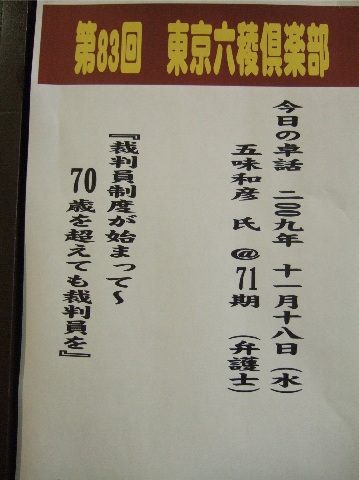 第83回 東京六稜倶楽部
今日の卓話 二〇〇九年 十一月十八日(水)
五味和彦 氏 @71期 (弁護士)
『裁判員制度が始まって〜
70歳を超えても裁判員を』